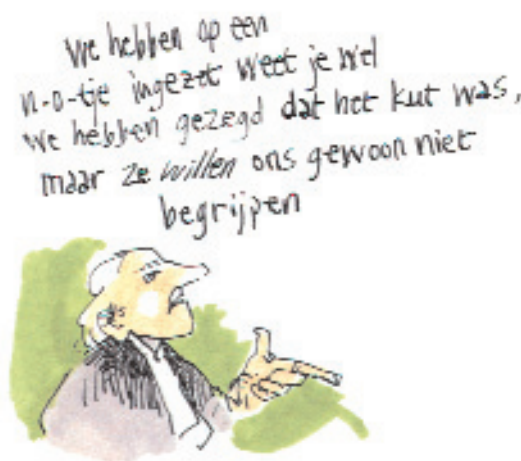 We hebben op een
n-o-tje ingezet weet je wel
we hebben gezegd dat het kut was,
maar ze willen ons gewoon niet
begrijpen